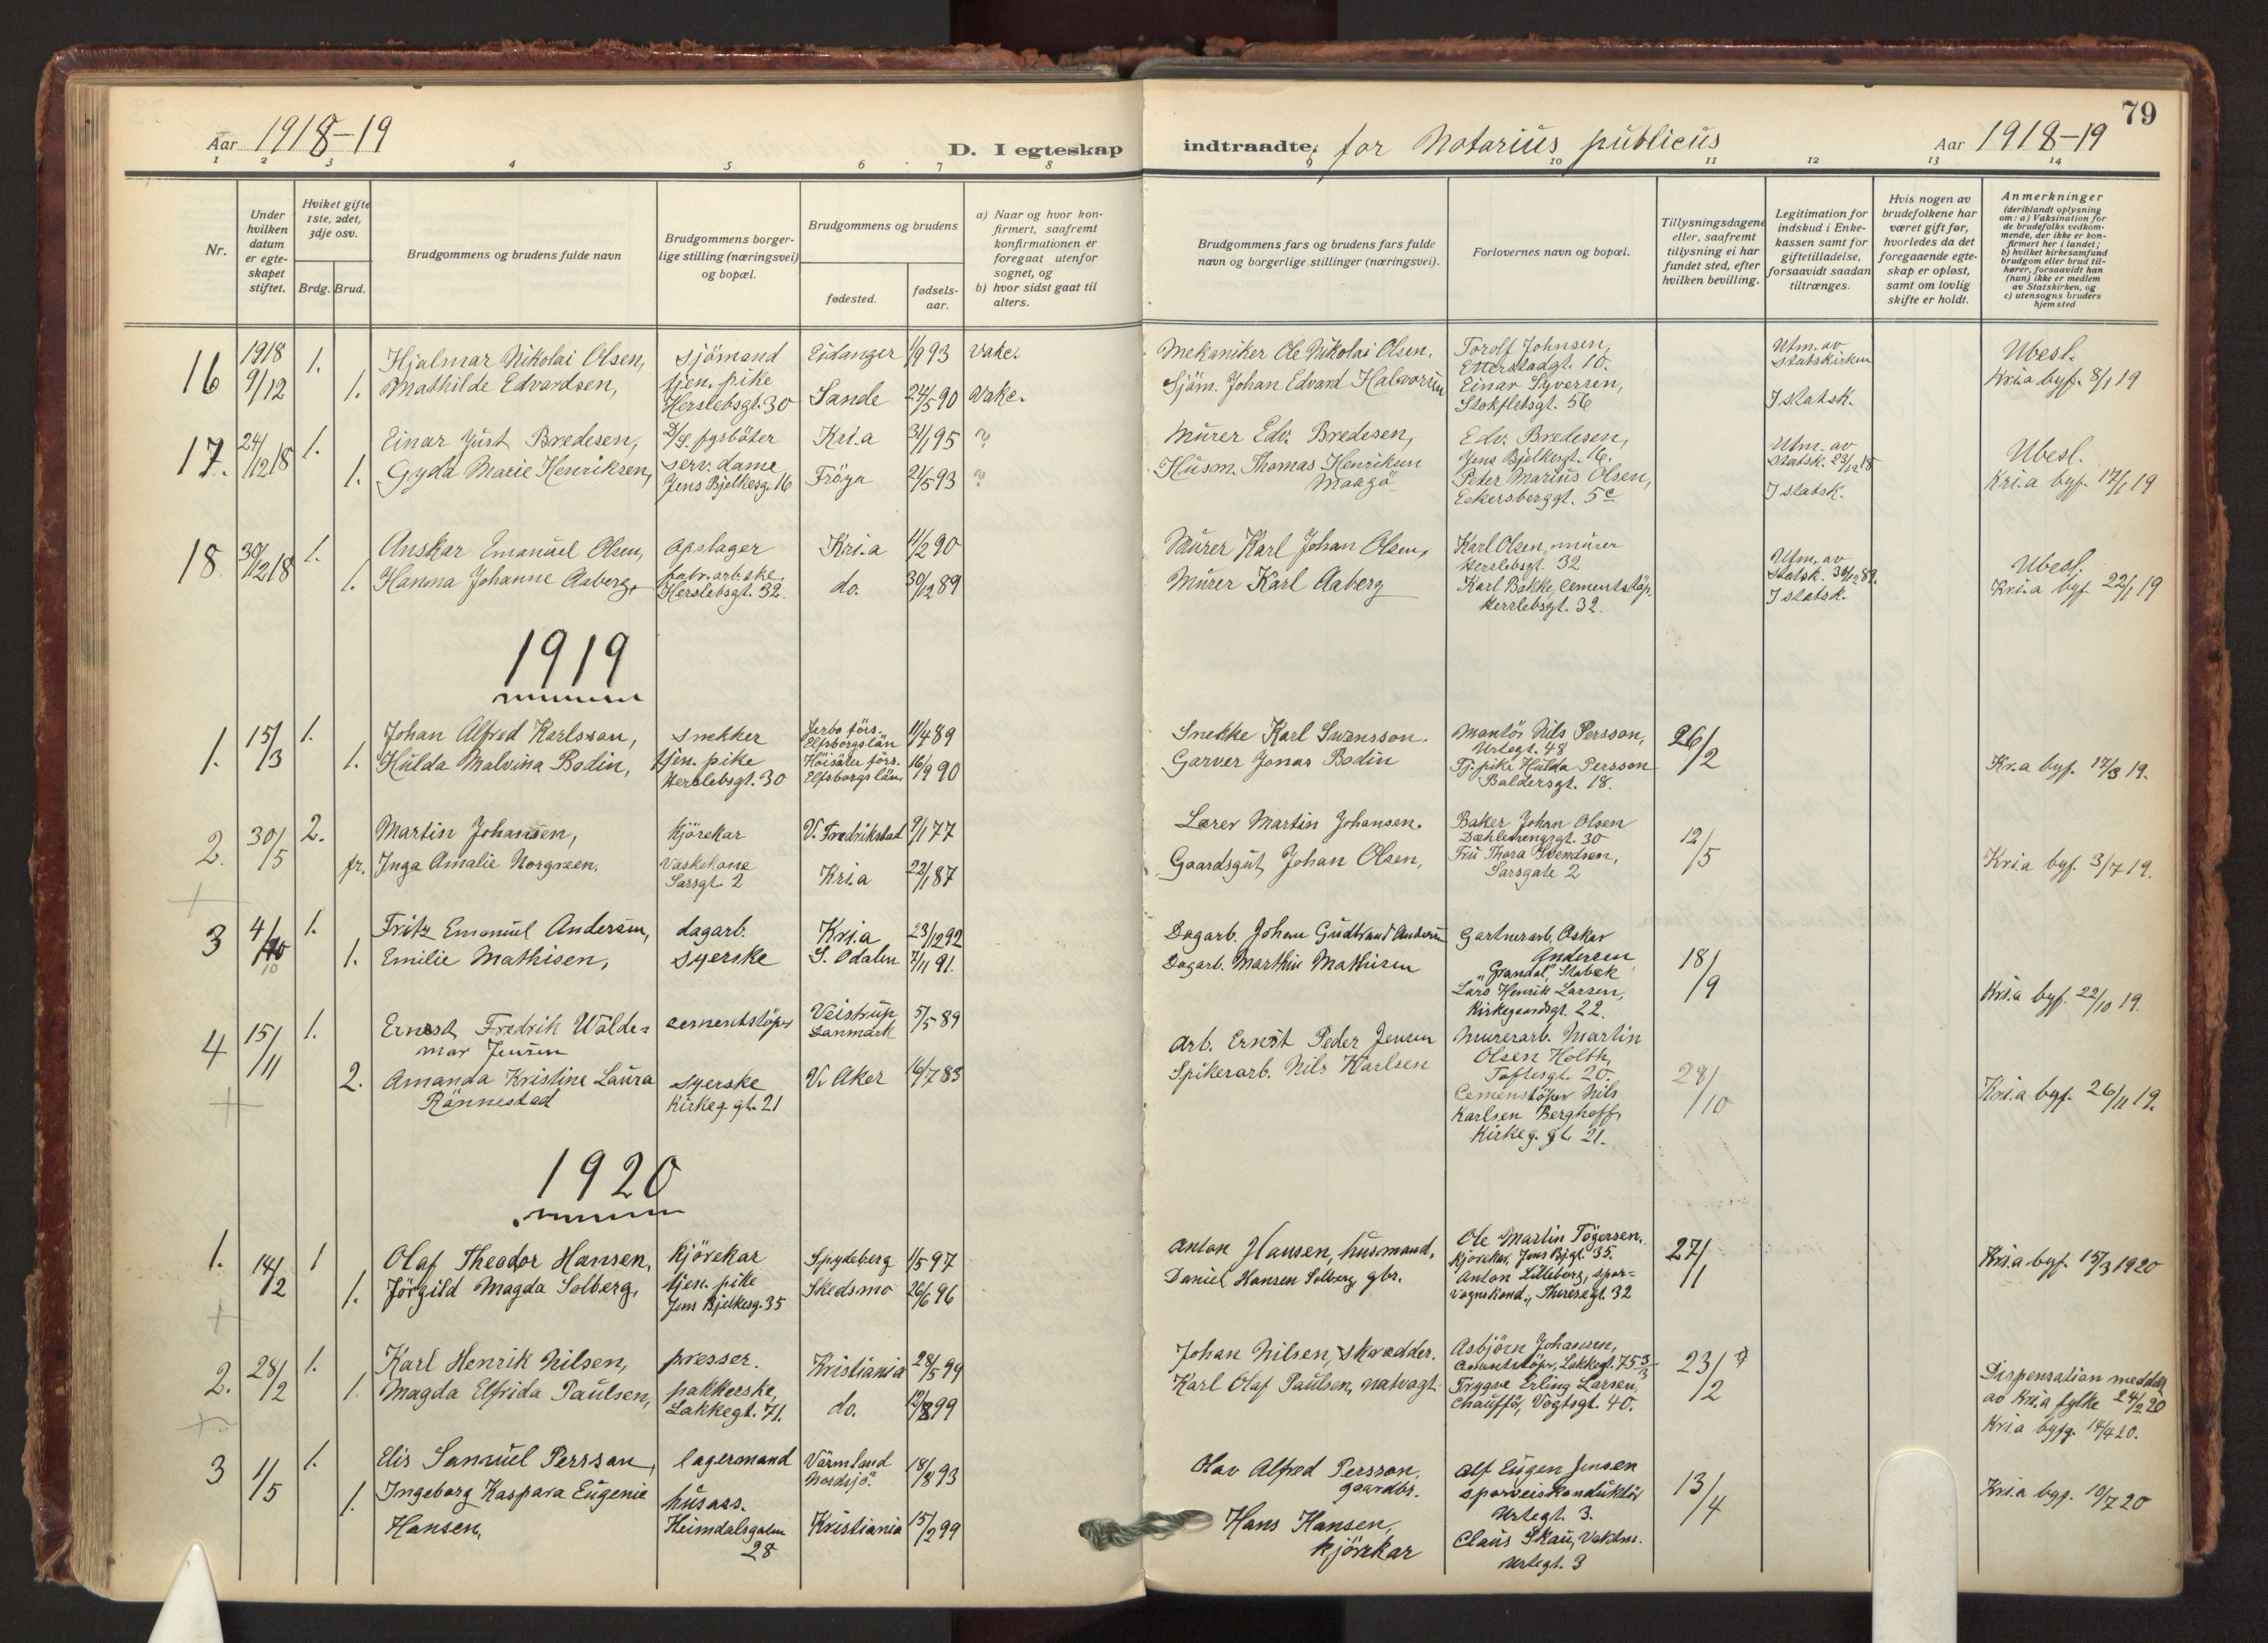 79
Aar 1918-19
D. I egteskap indtraadte, for Notarius publicus
Aar 1918-19
1 2 3 4 5 6 7 8 9 10 11 12 13 14
Nr.
Under hvilken datum er egteskapet stiftet.
Hvilket gifte 1ste, 2det, 3dje osv.
Brdg. Brud.
Brudgommens og brudens fulde navn
Brudgommens borgerlige stilling (næringsvei) og bopæl.
Brudgommens og brudens
fødested.
fødselsaar.
a) Naar og hvor konfirmert, saafremt konfirmationen er foregaat utenfor sognet, og
b) hvor sidst gaat til alters.
Brudgommens fars og brudens fars fulde navn og borgerlige stillinger (næringsvei).
Forlovernes navn og bopæl.
Tillysningsdagene eller, saafremt tillysning ei har fundet sted, efter hvilken bevilling.
Legitimation for indskud i Enkekassen samt for giftetilladelse, forsaavidt saadan tiltrænges.
Hvis nogen av brudefolkene har været gift før, hvorledes da det foregaaende egteskap er opløst, samt om lovlig skifte er holdt.
Anmerkninger
(deriblandt oplysning om: a) Vaksination for de brudefolks vedkommende, der ikke er konfirmert her i landet; b) hvilket kirkesamfund brudgom eller brud tilhører, forsaavidt han (hun) ikke er medlem av Statskirken, og c) utensogns bruders hjemsted
16 1918 9/12 1. Hjalmar Nikolai Olsen, sjömand Eidanger 1/9 93 vake. Mekaniker Ole Nikolai Olsen. Torolf Johnsen, Etterstadgt. 10. Utm. av statskirken Ubesl.
1. Mathilde Edvardsen, tjen. pike Herslebsgt. 30 Sande 24/5 90 vake. Sjöm. Johan Edvard Halvorsen Einar Syversen, Stokfletsgt. 56 I statsk. Kri.a byf. 8/1 19
17. 24/12 18 1. Einar Just Bredesen, fyrböter Kri.a 31/1 95 ? Murer Edv. Bredesen, Edv. Bredesen, Jens Bjelkesgt. 16. Utm. av statsk. 23/12 18 Ubesl.
1. Gyda Marie Henriksen, serv. dame Jens Bjelkesg. 16 Fröya 21/5 93 ? Husm. Thomas Henriksen Peter Marius Olsen, Eckersberggt. 5c I statsk. Kri.a byf. 17/1 19
18 30/12 18 1. Anskar Emanuel Olsen, opslager Kri.a 11/2 90 Murer Karl Johan Olsen, Karl Olsen, murer Herslebsgt. 32 Utm. av statsk. Ubesl.
1. Hanna Johanne Aaberg, fabr. arb.ske. Herslebsgt. 32. do. 30/12 89 Murer Karl Aaberg Karl Bakke, Cementstöp. Herslebsgt. 32. I statsk. Kri.a byf. 22/1 19
1919
1. 15/3 1. Johan Alfred Karlsson, snekker Jerbo förs. Elfsborgslän 11/4 89 Snekke Karl Svensson. Montör Nils Persson, Urtegt. 48 26/2
1. Hulda Malvina Bodin, tjen. pike Herslebsgt. 30 förs. Elfsborgs län. 16/9 90 Garver Jonas Bodin Tj. pike Hulda Persson Baldersgt. 18. Kr.a byf. 17/3 19.
2. 30/5 2. Martin Johansen, kjörekar V. Fredrikstad 9/1 77 Lærer Martin Johansen. Baker Johan Olsen Dæhlenengsgt. 30 12/5
fr. Inga Amalie Norgreen. Vaskekone Sarsgt. 2 Kri.a 22/1 87 Gaardsgut Johan Olsen, Fru Thora Svendsen, Sarsgate 2 Kri.a byf. 3/7 19.
3 4/10 10 1. Fritz Emanuel Andersen, dagarb. Kri.a 23/12 92 Dagarb. Johan Gudbrand Andersen Gartnerarb. Oskar Andersen "Grandal", Stabæk 18/9
1. Emilie Mathisen, syerske S. Odalen 7/11 91. Dagarb. Marthin Mathisen Lars Henrik Larsen, Kirkegaardsgt. 22. Kri.a byf. 22/10 19.
4 15/11 1. Ernst Fredrik Waldemar Jensen cementstöper Veistrup Danmark 5/5 89 Arb. Ernst Peder Jensen Murerarb. Martin Olsen Holth, Toftesgt. 20. 28/10
2. Amanda Kristine Laura Rännestad syerske Kirkeg. gt. 21 V. Aker 16/7 83 Spikerarb. Nils Karlsen Cemenstöper Nils Karlsen Berghoff, Kirkeg. gt. 21. Kri.a byf. 26/11 19.
1920
1. 14/2 1 Olaf Theodor Hansen, kjörekar Spydeberg 1/5 97 Anton Hansen, husmand. Ole Martin Tögersen. kjörekar, Jens Bj.gt. 35. 27/1
1. Jörgild Magda Solberg, tjen. pike Jens Bjelkesg. 35 Skedsmo 26/6 96 Daniel Hansen Solberg gbr. Anton Lilleberg, sporvognskond., Theresegt. 32 Kri.a byf. 15/3 1920
2. 28/2 1. Karl Henrik Nilsen, presser. Kristiania 28/5 99 Johan Nilsen, skrædder. Asbjörn Johansen, Cementstöper, Lakkegt. 75 23/2
1. Magda Elfrida Paulsen, pakkerske, Lakkegt. 71. do. 12/8 99 Karl Olaf Paulsen, natvagt. Trygve Erling Larsen, Chaufför, Vogtsgt. 40. Dispensation meddelt av Kri.a fylke 24/2 20 Kri.a byfg. 14/4 20.
3 1/5 1. Elis Samuel Persson, lagermand Värmland Nordsjö. 18/8 93 Olav Alfred Persson, gaardbr. Alf Eugen Jensen sporveiskonduktör Urtegt. 3. 13/4
1. Ingeborg Kaspara Eugenie Hansen, husass. Heimdalsgaten 28 Kristiania 15/2 99 Hans Hansen, kjörekar Claus Skau, Vaktm. Urtegt. 3 Kri.a byg. 10/7 20